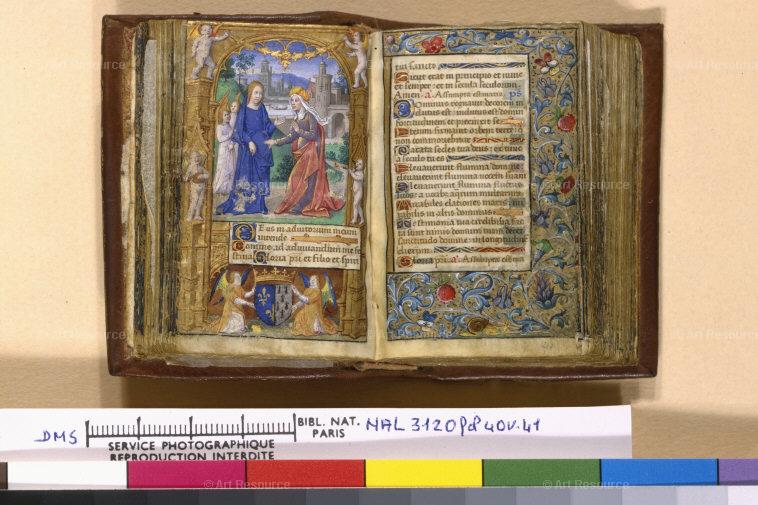 Eus in adiutorium meum
intende
Domine ad adiuuandum me fe
stina Gloria pri et filio et spiri
tui sancto
Sicut erat in principio et nunc
et semper et in secula seculorum
Amen a. Assumpta est maria ps
Dominus regnauit decorem in
dutus est indutus est dominus
fortitudinem et precinxit se
Etenim firmauit orbem terre
non commouebitur
Parata sedes tua deus ex tunc
a seculo tu es
Eleuauerunt flumina domine
eleuauerunt flumina vocem suam
Eleuauerunt flumina fluctus
suos a vocibus aquarum multarum
Mirabiles elationes maris mi
rabilis in altis dominus
Testimonia tua credibilia fac
ta sunt nimis domum tuam decet
sanctitudo domine in longitudinem
dierum
Gloria pri a. Assumpta est ma
DMS
SERVICE PHOTOGRAPHIQUE
REPRODUCTION INTERDITE
BIBL. NAT.
PARIS
NAL 3120 fol 40v-41
© Art Resource